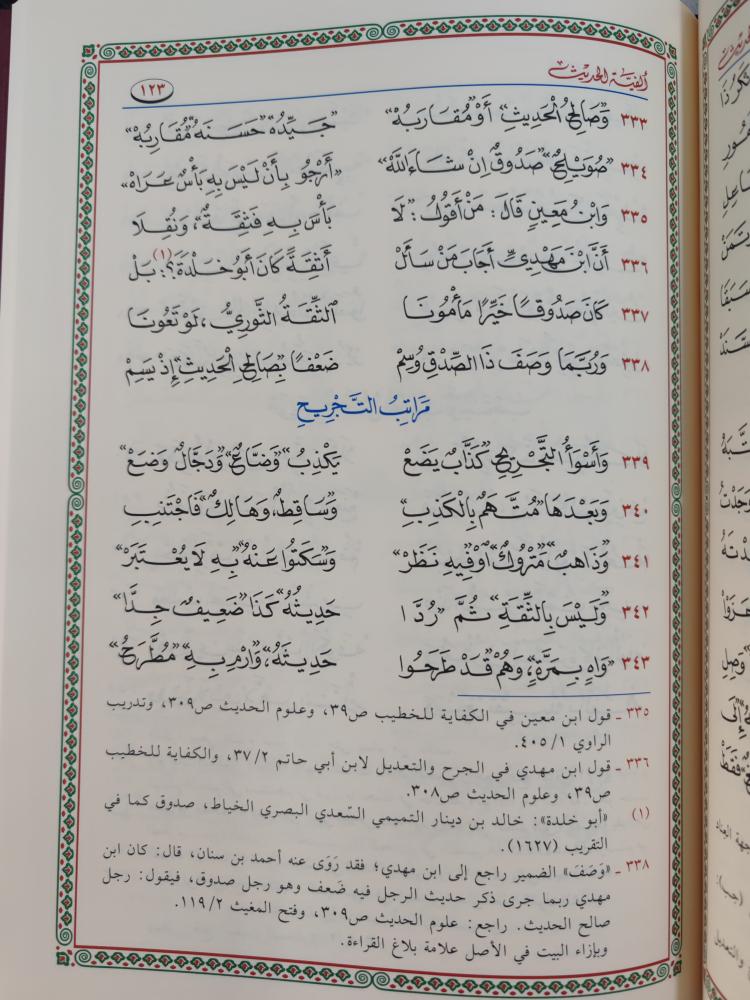 ألفية الحديث
١٢٣
٣٣٣ وَ«صَالِحُ الْحَدِيثِ» أَوْ «مُقَارَبُهْ» «جَيِّدُهُ» «حَسَنُهُ» «مُقَارِبُهْ»
٣٣٤ «صُوَيْلِحٌ» «صَدُوقٌ إِنْ شَاءَ اللَّهْ» «أَرْجُو بِأَنْ لَيْسَ بِهِ بَأْسٌ» عَرَاهْ
٣٣٥ وَابْنُ مَعِينٍ قَالَ: مَنْ أَقُولُ: «لَا بَأْسَ بِهِ» فَثِقَةٌ، وَنُقِلَا
٣٣٦ أَنَّ ابْنَ مَهْدِيٍّ أَجَابَ مَنْ سَأَلْ أَثِقَةً كَانَ أَبُو خَلْدَةَ؟(١): بَلْ
٣٣٧ كَانَ صَدُوقًا خَيِّرًا مَأْمُونَا الثِّقَةُ الثَّوْرِيُّ، لَوْ تَعُونَا
٣٣٨ وَرُبَّمَا وَصَفَ ذَا الصِّدْقِ وُسِمْ ضَعْفًا بِـ«صَالِحِ الْحَدِيثِ» إِذْ يَسِمْ
مَرَاتِبُ التَّجْرِيحِ
٣٣٩ وَأَسْوَأُ التَّجْرِيحِ «كَذَّابٌ» «يَضَعْ» «يَكْذِبُ» «وَضَّاعٌ» وَ«دَجَّالٌ» «وَضَعْ»
٣٤٠ وَبَعْدَهَا «مُتَّهَمٌ بِالْكَذِبِ» وَ«سَاقِطٌ» وَ«هَالِكٌ» فَاجْتَنِبِ
٣٤١ وَ«ذَاهِبٌ» «مَتْرُوكٌ» اوْ «فِيهِ نَظَرْ» وَ«سَكَتُوا عَنْهُ» «بِهِ لَا يُعْتَبَرْ»
٣٤٢ وَ«لَيْسَ بِالثِّقَةِ» ثُمَّ «رُدَّا حَدِيثُهُ» كَذَا «ضَعِيفٌ جِدَّا»
٣٤٣ «وَاهٍ بِمَرَّةٍ»، وَ«هُمْ قَدْ طَرَحُوا حَدِيثَهُ»، وَ«ارْمِ بِهِ» «مُطَّرَحُ»
٣٣٥ ـ قول ابن معين في الكفاية للخطيب ص٣٩، وعلوم الحديث ص٣٠٩، وتدريب
الراوي ١/ ٤٠٥.
٣٣٦ ـ قول ابن مهدي في الجرح والتعديل لابن أبي حاتم ٢/ ٣٧، والكفاية للخطيب
ص٣٩، وعلوم الحديث ص٣٠٨.
(١) «أبو خلدة»: خالد بن دينار التميمي السّعدي البصري الخياط، صدوق كما في
التقريب (١٦٢٧).
٣٣٨ ـ «وَصَفَ» الضمير راجع إلى ابن مهدي؛ فقد رَوَى عنه أحمد بن سنان، قال: كان ابن
مهدي ربما جرى ذكر حديث الرجل فيه ضَعف وهو رجل صدوق، فيقول: رجل
صالح الحديث. راجع: علوم الحديث ص٣٠٩، وفتح المغيث ٢/ ١١٩.
وبإزاء البيت في الأصل علامة بلاغ القراءة.